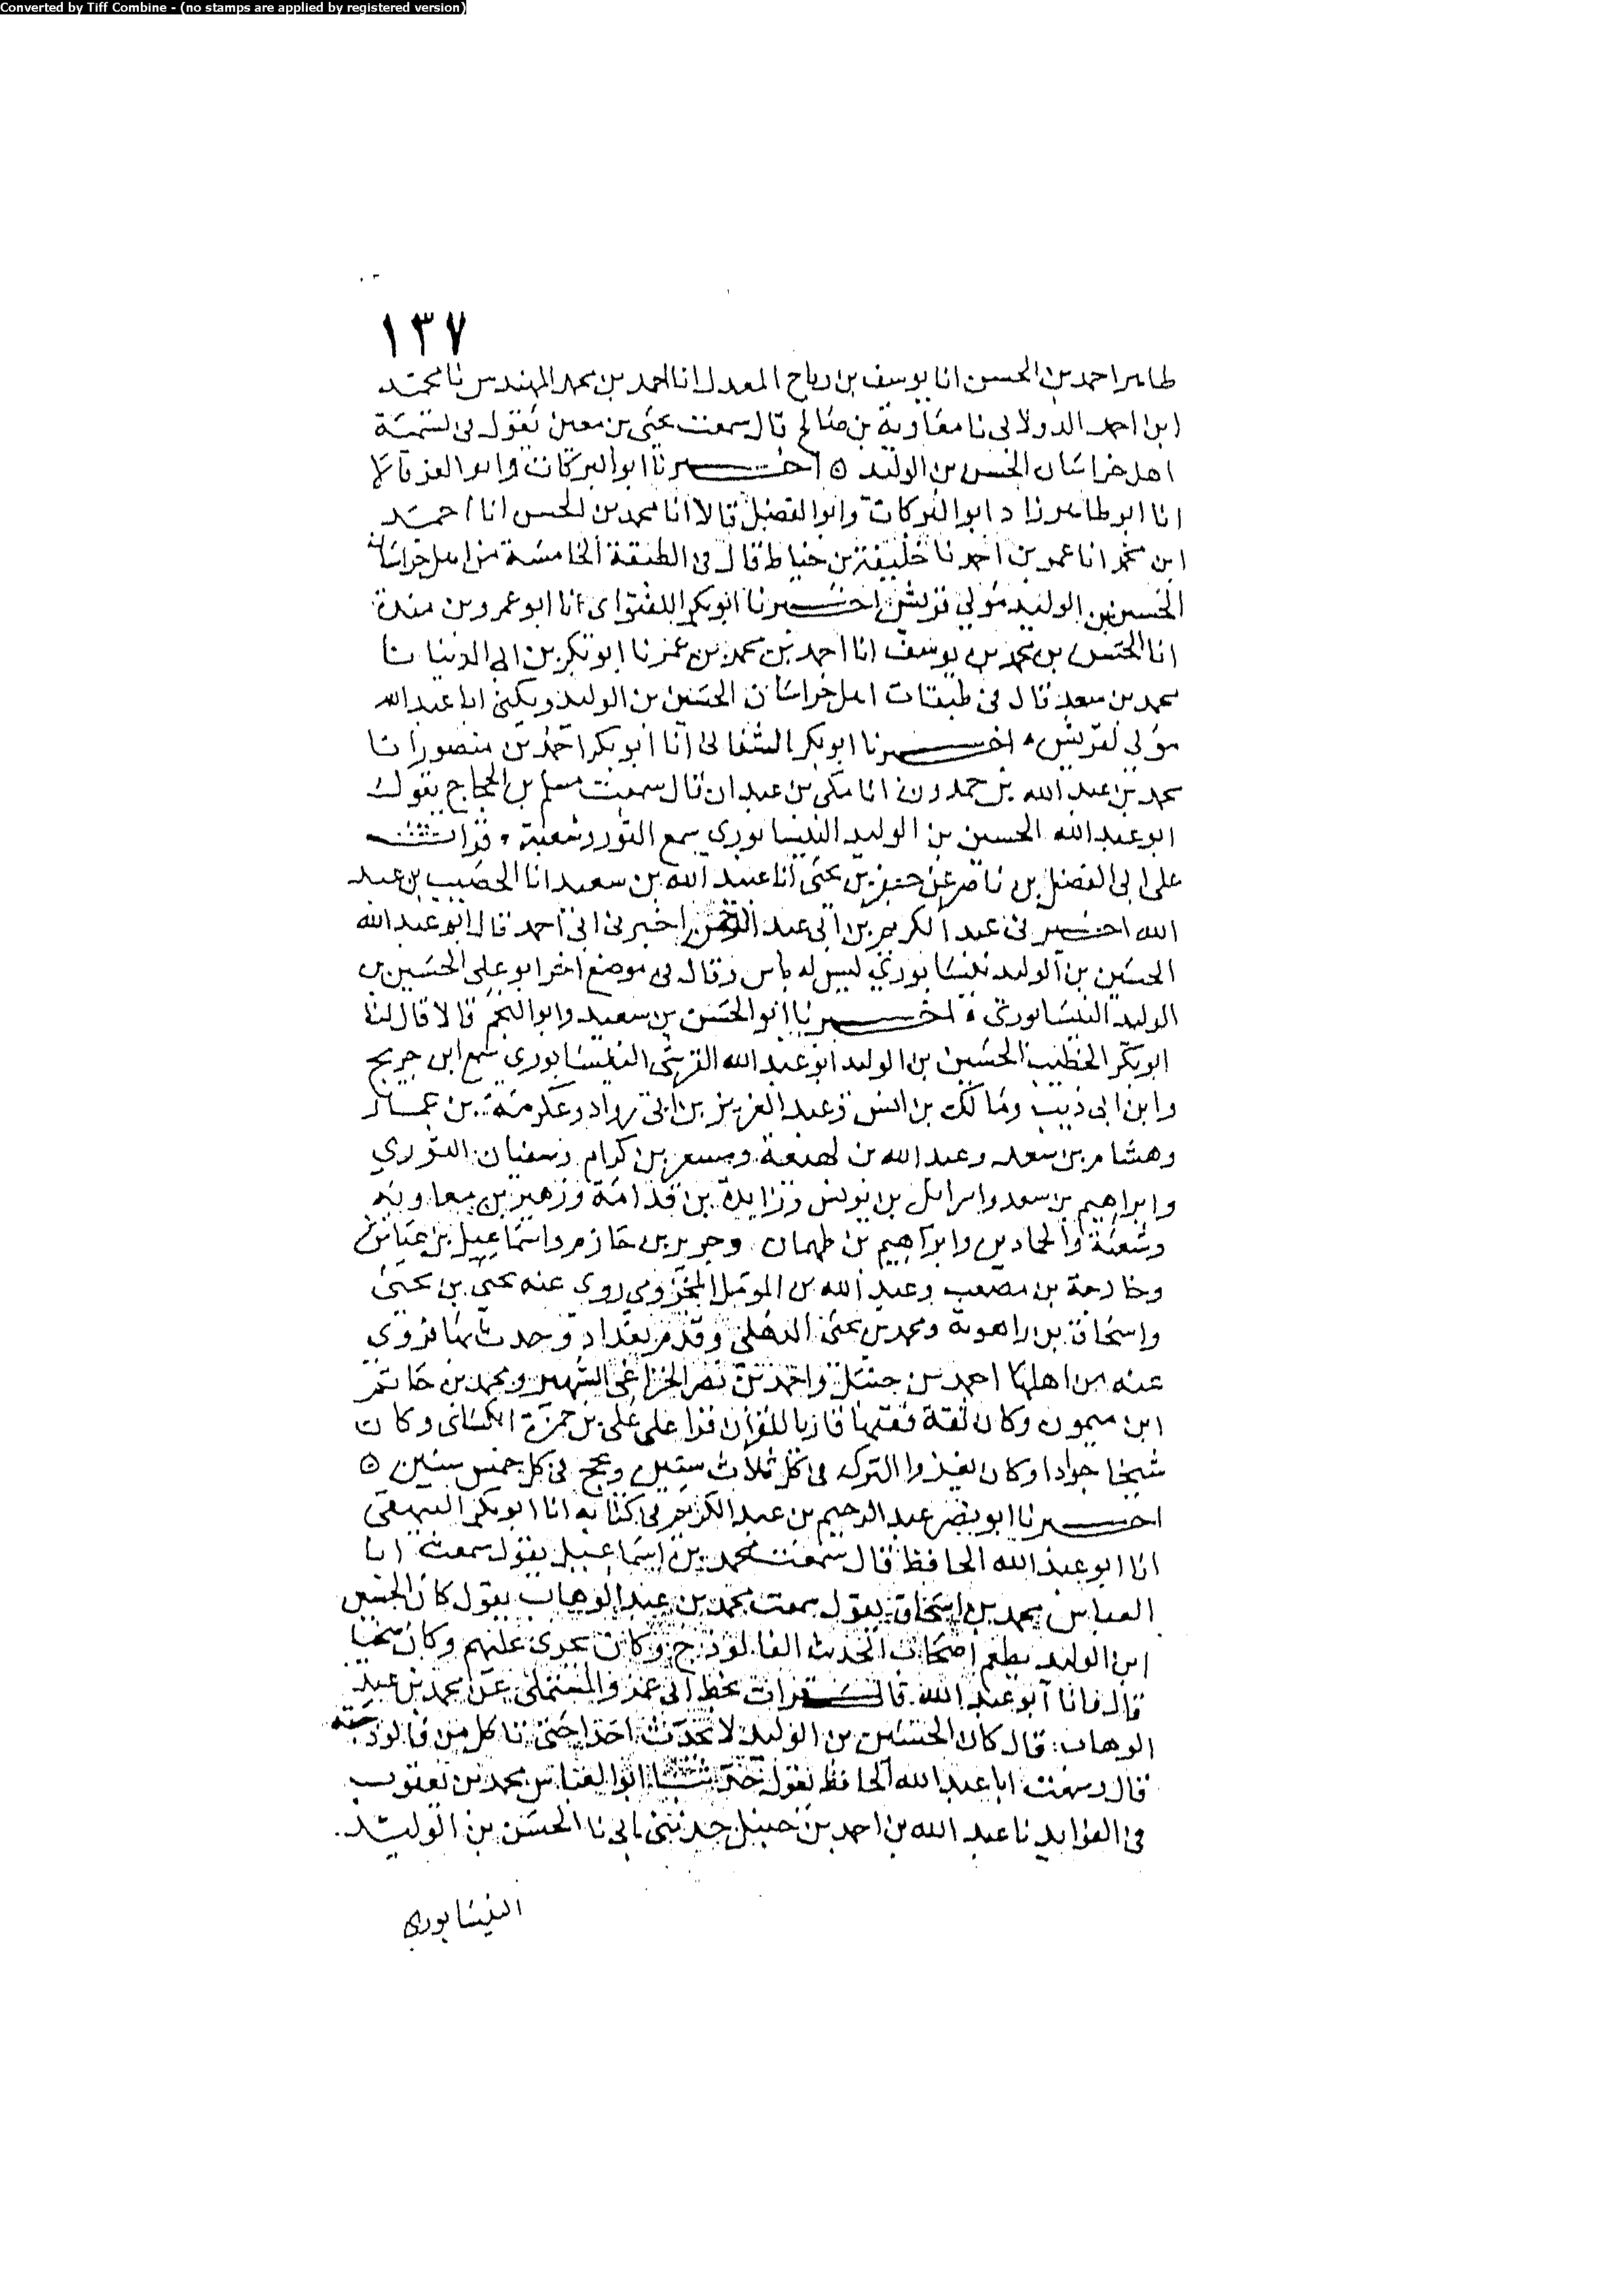 Converted by Tiff Combine - (no stamps are applied by registered version)
١٣٧
طاهر احمد بن الحسن انا يوسف بن رباح المعدل انا احمد بن محمد المهندس نا محمد
ابن احمد الدولابى نا معاوية بن صالح قال سمعت يحيى بن معين يقول فى تسمية
اهل خراسان الحسن بن الوليد ۞ اخبرنا ابو البركات وابو العز قالا
انا ابو طاهر زاد ابو البركات وابو الفضل قالا انا محمد بن الحسن انا احمد
ابن محمد انا عمر بن احمد نا خليفة بن خياط قال فى الطبقة الخامسة من اهل خراسان
الحسين بن الوليد مولى قريش اخبرنا ابو بكر اللفتوانى انا ابو عمرو بن مندة
انا الحسن بن محمد بن يوسف انا احمد بن محمد بن عمر نا ابو بكر بن ابى الدنيا نا
محمد بن سعد قال فى طبقات اهل خراسان الحسين بن الوليد ويكنى ابا عبد الله
مولى لقريش ۰ اخبرنا ابو بكر الشقانى انا ابو بكر احمد بن منصور انا
محمد بن عبد الله بن حمدون انا مكى بن عبدان قال سمعت مسلم بن الحجاج يقول
ابو عبد الله الحسين بن الوليد النيسابورى سمع الثورى وشعبة ۰ قرات
على ابى الفضل بن ناصر عن جعفر بن يحيى انا عبيد الله بن سعيد انا الخصيب بن عبد
الله اخبرنى عبد الكريم بن ابى عبد الرحمن اخبرنى ابى احمد قال ابو عبد الله
الحسين بن الوليد نيسابورى ليس به باس وقال فى موضع اخر ابو على الحسين بن
الوليد النيسابورى ۰ اخبرنا ابو الحسن بن سعيد وابو النجم قالا قال لنا
ابو بكر الخطيب الحسين بن الوليد ابو عبد الله القرشى النيسابورى سمع ابن جريج
وابن ابى ذيب ومالك بن انس وعبد العزيز بن ابى رواد وعكرمة بن عمار
وهشام بن سعد وعبد الله بن لهيعة ومسعر بن كرام وسفيان الثورى
وابراهيم بن سعد واسرايل بن يونس وزايدة بن قدامة وزهير بن معاوية
وشعبة والحمادين وابراهيم بن طهمان وجرير بن حازم واسماعيل بن عياش
وخارجة بن مصعب وعبد الله بن المومل المخزومى روى عنه يحيى بن يحيى
واسحاق بن راهوية ومحمد بن يحيى الذهلى وقدم بغداد وحدث بها فروى
عنه من اهلها احمد بن حنبل واحمد بن نصر الخزاعى الشهيد ومحمد بن حاتم
ابن ميمون وكان ثقة فقيها قاريا للقرآن قرا على على بن حمزة الكسائى وكان
شيخا جوادا وكان يغزوا الترك فى كل ثلاث سنين ويحج فى كل خمس سنين ۞
اخبرنا ابو نصر عبد الرحيم بن عبد الكريم فى كتابه انا ابو بكر البيهقى
انا ابو عبد الله الحافظ قال سمعت محمد بن اسماعيل يقول سمعت ابا
العباس محمد بن اسحاق يقول سمعت محمد بن عبد الوهاب يقول كان الحسين
ابن الوليد يطعم اصحاب الحديث الفالوذج وكان يجرى عليهم وكان سخيا
قال وانا ابو عبد الله قال قرات بخط ابى عمرو المستملى عن محمد بن عبد
الوهاب قال كان الحسين بن الوليد لا يحدث احدا حتى ياكل من فالوذجته
قال وسمعت ابا عبد الله الحافظ يقول حدثنا ابو العباس محمد بن يعقوب
فى الفوايد نا عبد الله بن احمد بن حنبل حدثنى ابى نا الحسن بن الوليد
النيسابورى